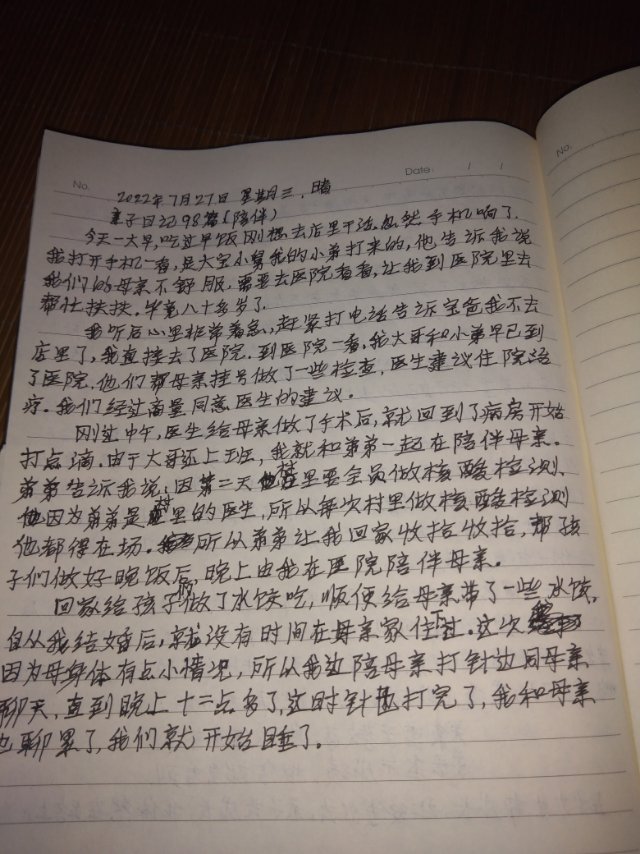 No.
Date / /
No.
2022年7月27日 星期三、晴
亲子日记98篇(陪伴)
今天一大早,吃过早饭刚想去店里干活,忽然手机响了.
我打开手机一看,是大宝小舅我的小弟打来的,他告诉我说
我们的母亲不舒服.需要去医院看看,让我到医院里去
帮忙扶扶.毕竟八十多岁了.
我听后心里非常着急,赶紧打电话告诉宝爸我不去
店里了,我直接去了医院.到医院一看,我大哥和小弟早已到
了医院.他们帮母亲挂号做了一些检查,医生建议住院治
疗.我们经过商量同意医生的建议.
刚过中午,医生给母亲做了手术后,就回到了病房开始
打点滴.由于大哥还上班,我就和弟弟一起在陪伴母亲.
弟弟告诉我说,因第二天村里要全员做核酸检测、
因为弟弟是村里的医生,所以每次村里做核酸检测
他都得在场.所以弟弟让我回家收拾收拾,帮孩
子们做好晚饭后,晚上由我在医院陪伴母亲。
回家给孩子们做了水饺吃,顺便给母亲带了一些水饺,
自从我结婚后,就没有时间在母亲家住过.这次
因为母身体有点小情况,所以我边陪母亲打针边同母亲
聊天,直到晚上十二点多了,这时针也打完了,我和母亲
也聊累了,我们就开始睡了.